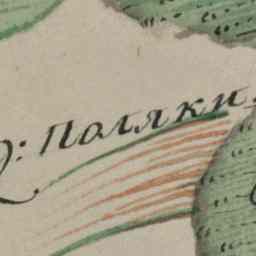 : Поляки